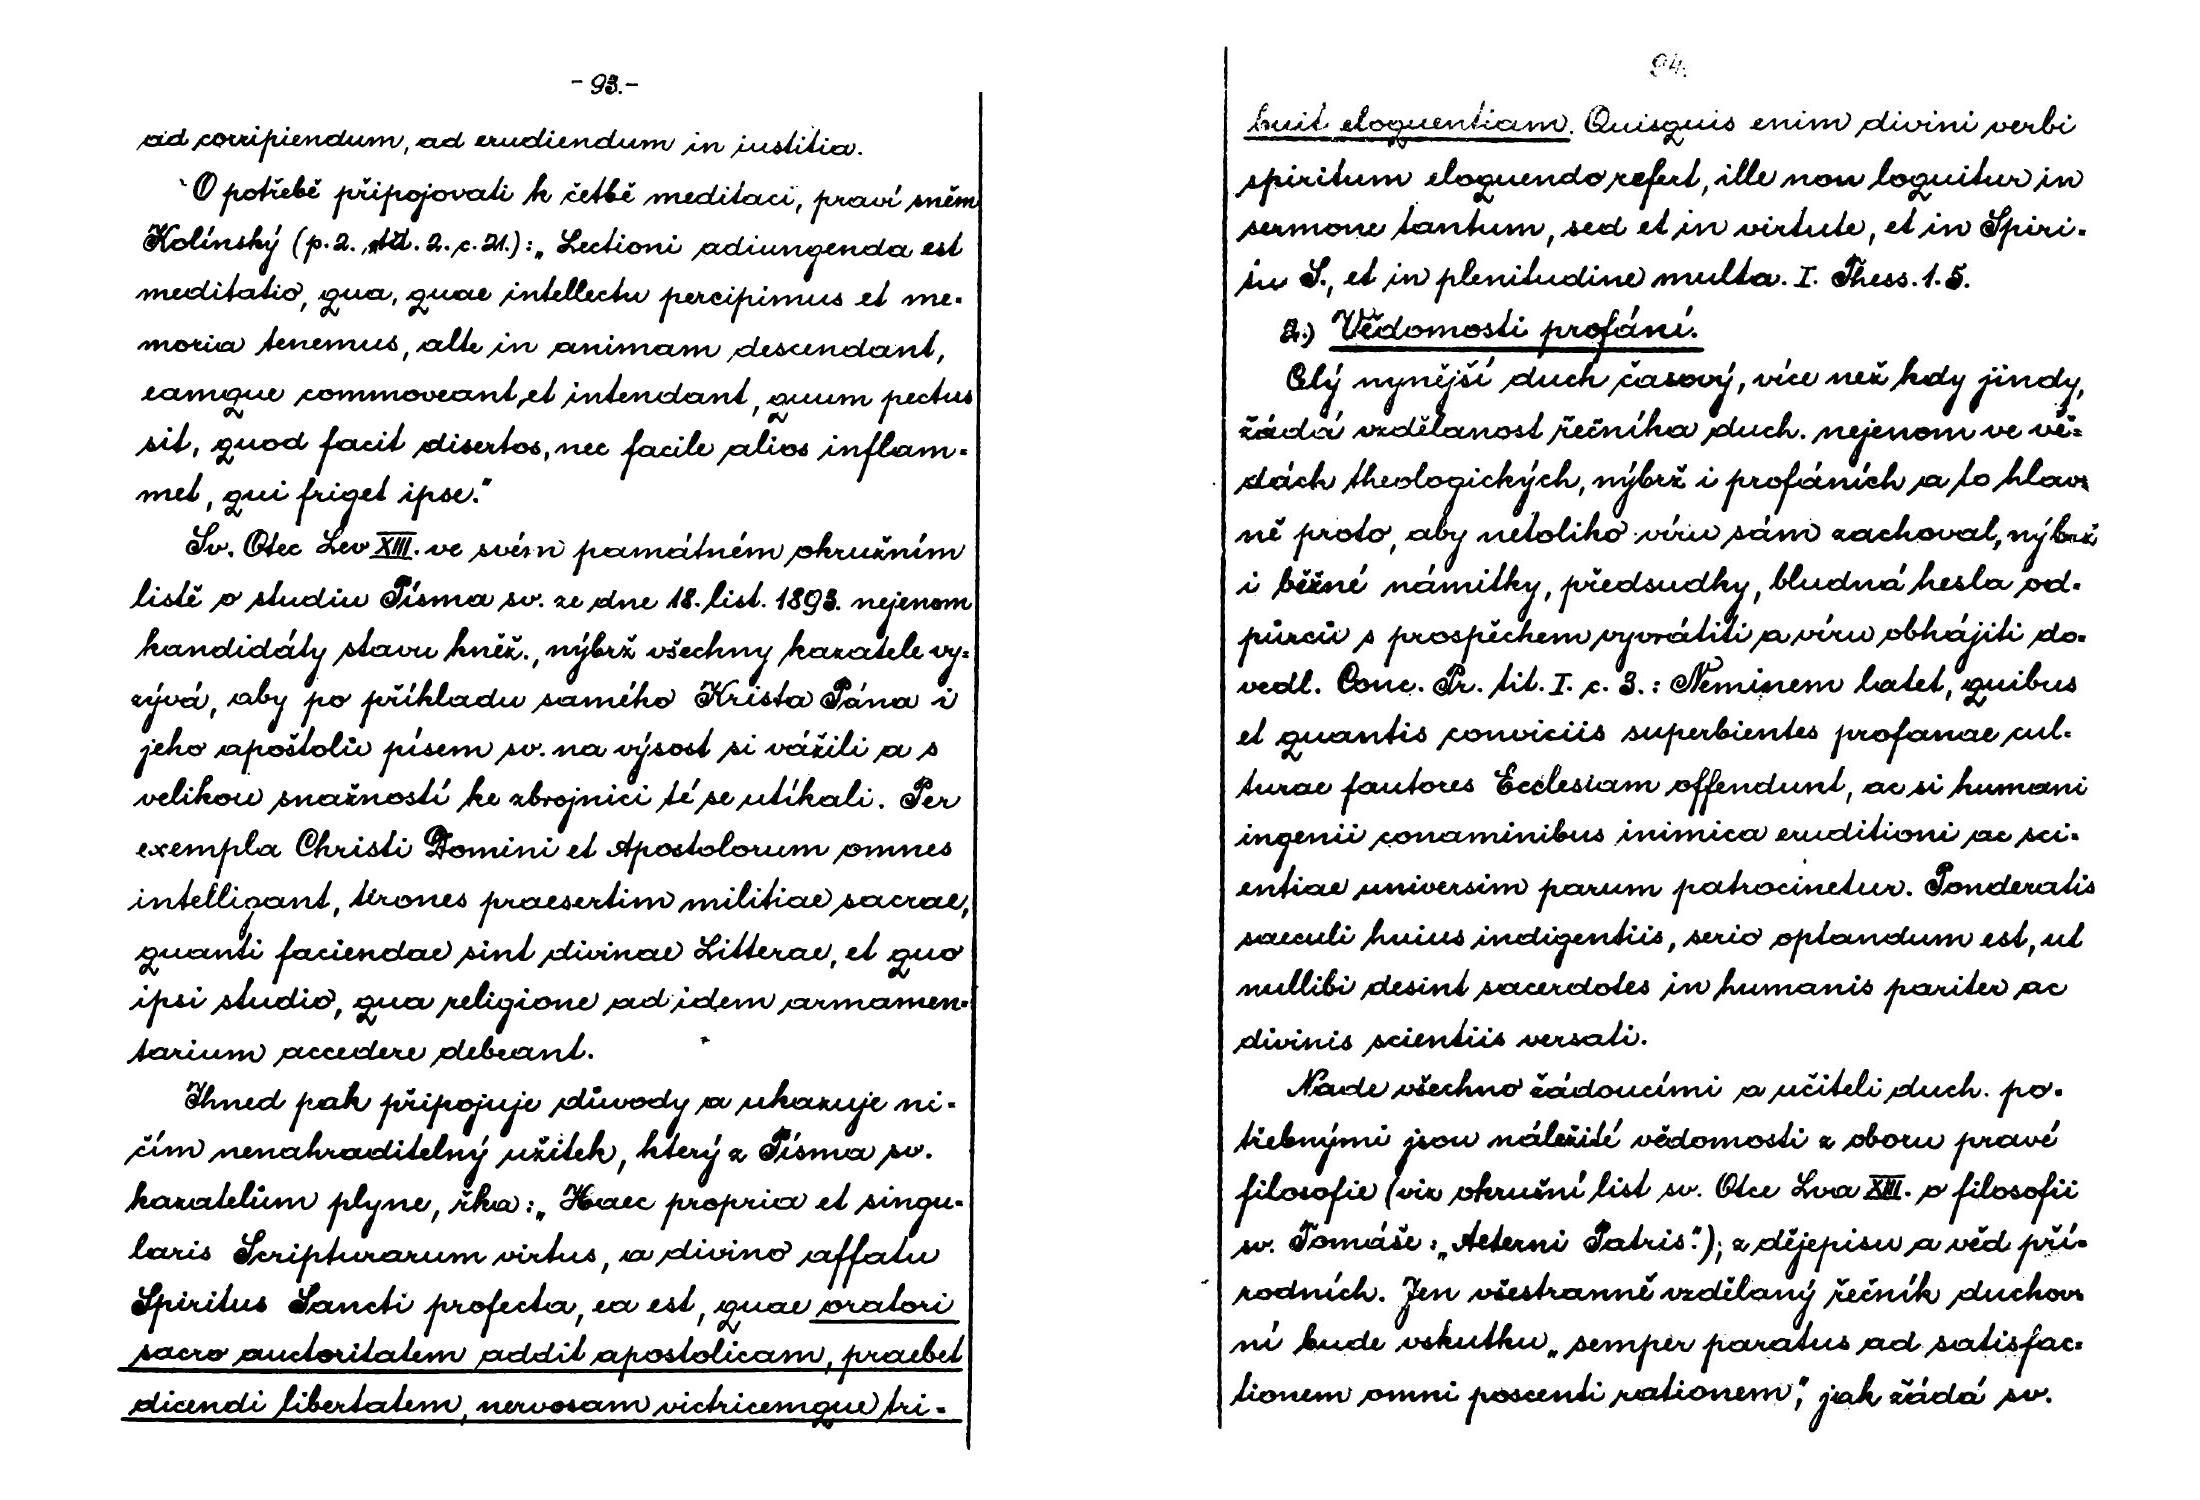 - 93. -
ad corripiendum, ad erudiendum in iustitia.
O potřebě připojovati k četbě meditaci, praví sněm
Kolínský (p. 2. tit. 2. c. 21.): „Lectioni adiungenda est
meditatio, qua, quae intellectu percipimus et me-
moria tenemus, alte in animam descendant,
eamque commoveant et intendant, quum pectus
sit, quod facit disertos, nec facile alios inflam-
met, qui friget ipse."
Sv. Otec Lev XIII. ve svém památném okružním
listě o studiu Písma sv. ze dne 18. list. 1893. nejenom
kandidáty stavu kněž., nýbrž všechny kazatele vy-
zývá, aby po příkladu samého Krista Pána i
jeho apoštolů písem sv. na výsost si vážili a s
velikou snažností ke zbrojnici té se utíkali. Per
exempla Christi Domini et Apostolorum omnes
intelligant, tirones praesertim militiae sacrae,
quanti faciendae sint divinae Litterae, et quo
ipsi studio, qua religione ad idem armamen-
tarium accedere debeant.
Ihned pak připojuje důvody a ukazuje ni-
čím nenahraditelný užitek, který z Písma sv.
kazatelům plyne, řka: „Haec propria et singu-
laris Scripturarum virtus, a divino affatu
Spiritus Sancti profecta, ea est, quae oratori
sacro auctoritatem addit apostolicam, praebet
dicendi libertatem, nervosam victricemque tri-
94.
buit eloquentiam. Quisquis enim divini verbi
spiritum eloquendo refert, ille non loquitur in
sermone tantum, sed et in virtute, et in Spiri-
tu S., et in plenitudine multa. I. Thess. 1. 5.
2.) Vědomosti profání.
Celý nynější duch časový, více než kdy jindy,
žádá vzdělanost řečníka duch. nejenom ve vě-
dách theologických, nýbrž i profáních a to hlav-
ně proto, aby netoliko víru sám zachoval, nýbrž
i běžné námitky, předsudky, bludná hesla od-
půrců s prospěchem vyvrátiti a víru obhájiti do-
vedl. Conc. Pr. tit. I. c. 3.: Neminem latet, quibus
et quantis conviciis superbientes profanae cul-
turae fautores Ecclesiam offendunt, ac si humani
ingenii conaminibus inimica eruditioni ac sci-
entiae universim parum patrocinetur. Ponderatis
saeculi huius indigentiis, serio optandum est, ut
nullibi desint sacerdotes in humanis pariter ac
divinis scientiis versati.
Nade všechno žádoucími a učiteli duch. po-
třebnými jsou náležité vědomosti z oboru pravé
filosofie (viz okružní list sv. Otce Lva XIII. o filosofii
sv. Tomáše: „Aeterni Patris."); z dějepisu a věd pří-
rodních. Jen všestranně vzdělaný řečník duchov-
ní bude vskutku „semper paratus ad satisfac-
tionem omni poscenti rationem", jak žádá sv.